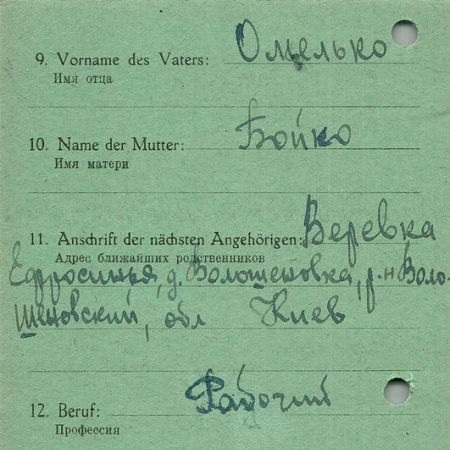 9. Vorname des Vaters: Омелько
Имя отца
10. Name der Mutter: Бойко
Имя матери
11. Anschrift der nächsten Angehörigen: Веревка
Адрес ближайших родственников
Ефросинья, д. Волошеновка, р-н Воло-
шеновский, обл Киев
12. Beruf: Рабочий
Профессия